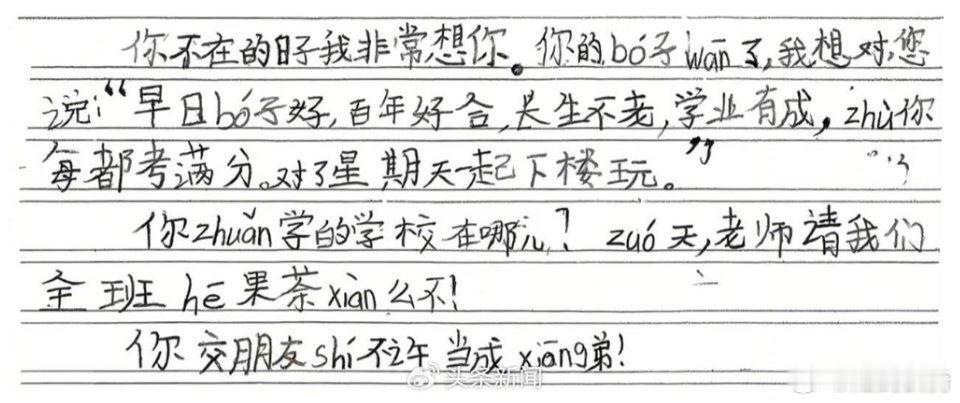 你不在的日子我非常想你。你的bó子wān了,我想对您
说:“早日bó子好,百年好合,长生不老,学业有成,zhù你
每都考满分。对了星期天一起下楼玩。”
你zhuǎn学的学校在哪儿?zuó天,老师请我们
全班hē果茶xiàn么不!
你交朋友shí不许当成xiōng弟!
头条新闻